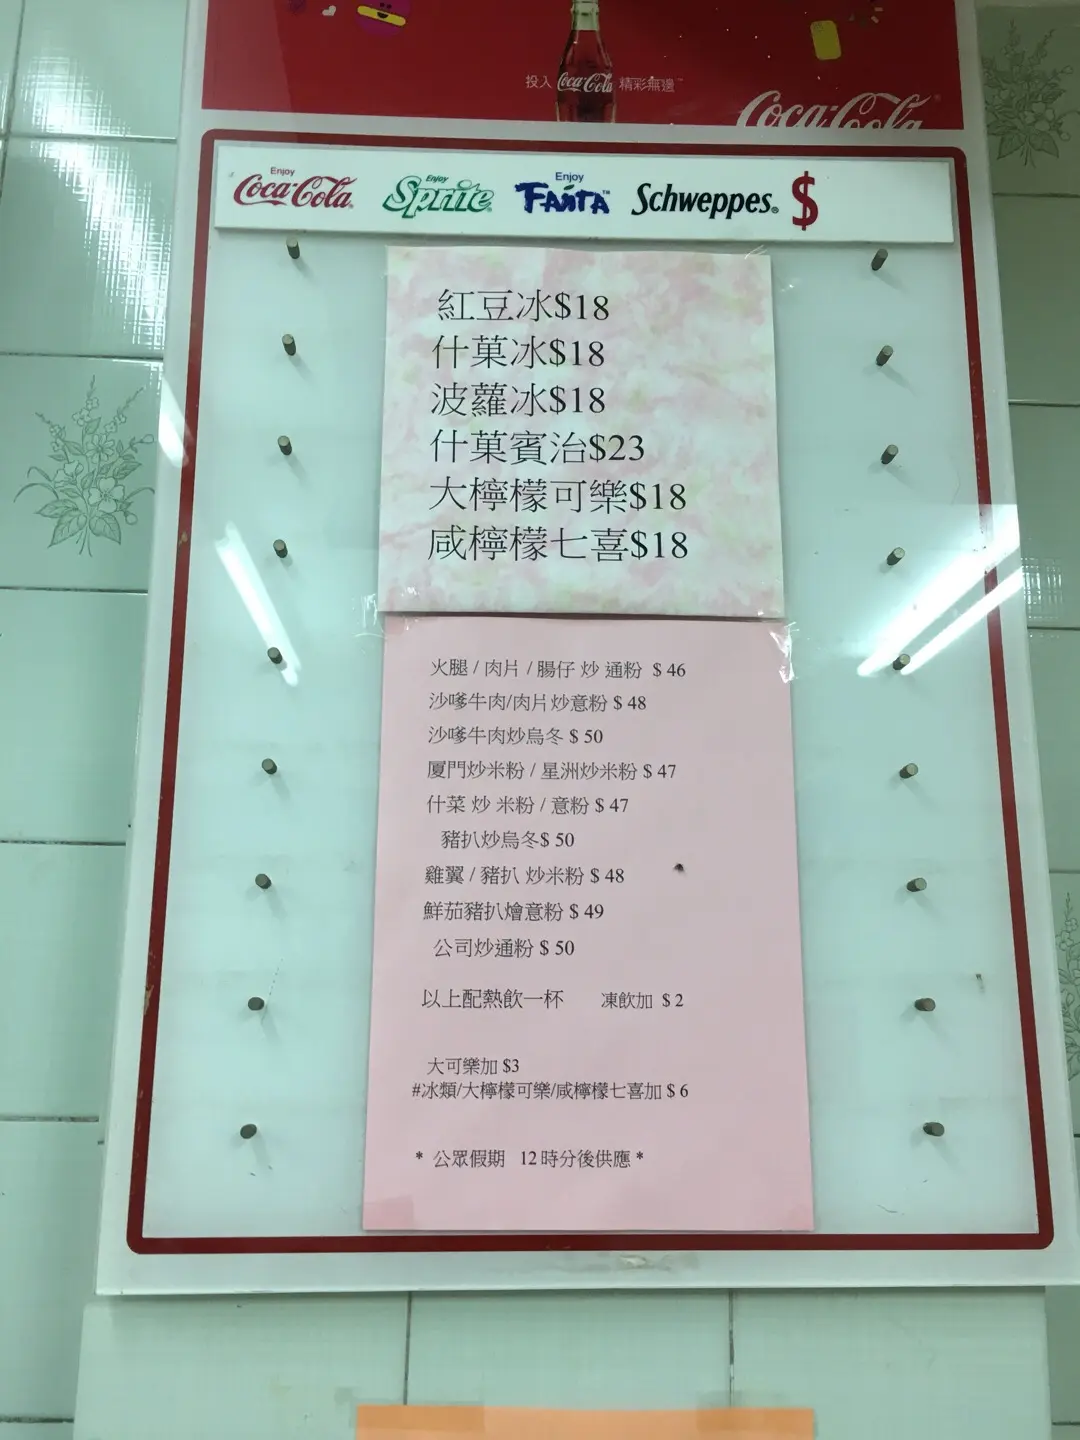 投入 Coca-Cola 精彩無邊™
Coca-Cola
Enjoy Coca-Cola® Enjoy Sprite® Enjoy FANTA™ Schweppes® $
紅豆冰$18
什菓冰$18
波蘿冰$18
什菓賓治$23
大檸檬可樂$18
咸檸檬七喜$18
火腿 / 肉片 / 腸仔 炒 通粉 $ 46
沙嗲牛肉/肉片炒意粉 $ 48
沙嗲牛肉炒烏冬 $ 50
厦門炒米粉 / 星洲炒米粉 $ 47
什菜 炒 米粉 / 意粉 $ 47
豬扒炒烏冬$ 50
雞翼 / 豬扒 炒米粉 $ 48
鮮茄豬扒燴意粉 $ 49
公司炒通粉 $ 50
以上配熱飲一杯 凍飲加 $ 2
大可樂加 $3
#冰類/大檸檬可樂/咸檸檬七喜加 $ 6
* 公眾假期 12 時分後供應 *